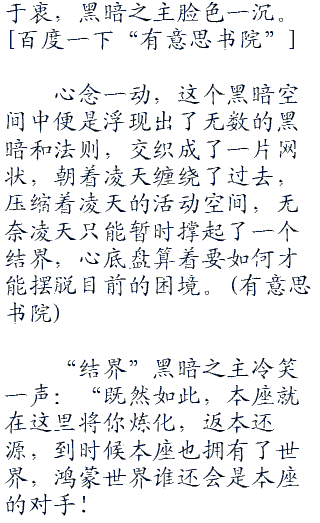 于衷，黑暗之主脸色一沉。
[百度一下“有意思书院”]
心念一动，这个黑暗空
间中便是浮现出了无数的黑
暗和法则，交织成了一片网
状，朝着凌天缠绕了过去，
压缩着凌天的活动空间，无
奈凌天只能暂时撑起了一个
结界，心底盘算着要如何才
能摆脱目前的困境。(有意思
书院)
“结界”黑暗之主冷笑
一声：“既然如此，本座就
在这里将你炼化，返本还
源，到时候本座也拥有了世
界，鸿蒙世界谁还会是本座
的对手！